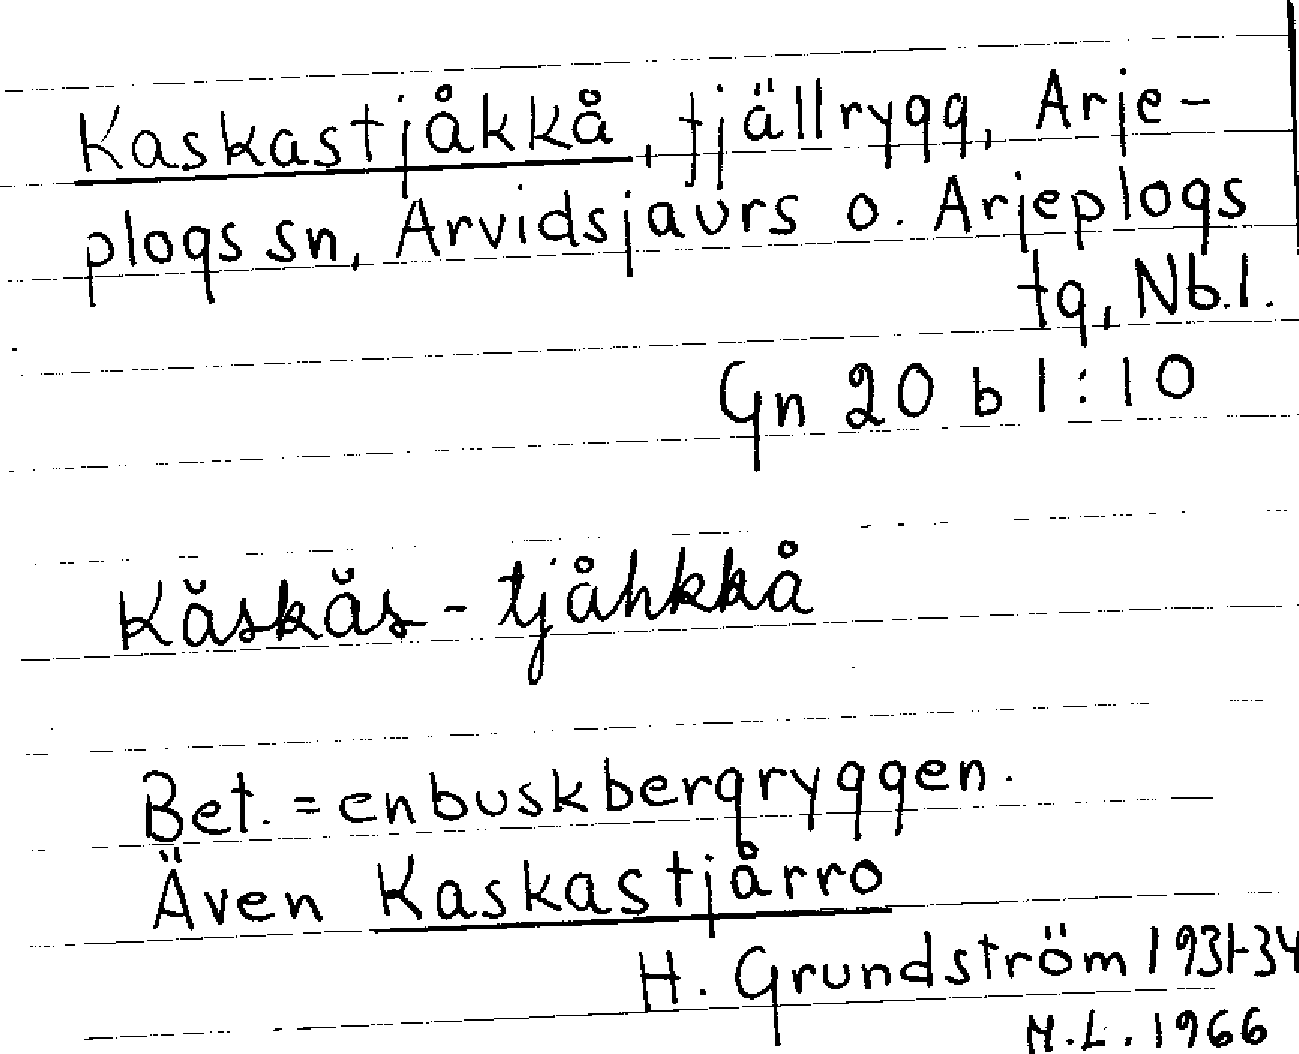 Kaskastjåkkå, tjällrygg, Arje-
plogs sn, Arvidsjaurs o. Arjeplogs
tg, Nb.l.
Gn 20 b 1:10
Kăskăs-tjåhkkå
Bet. = enbuskbergryggen.
Även Kaskastjårro
H. Grundström 1931-34
M.L. 1966